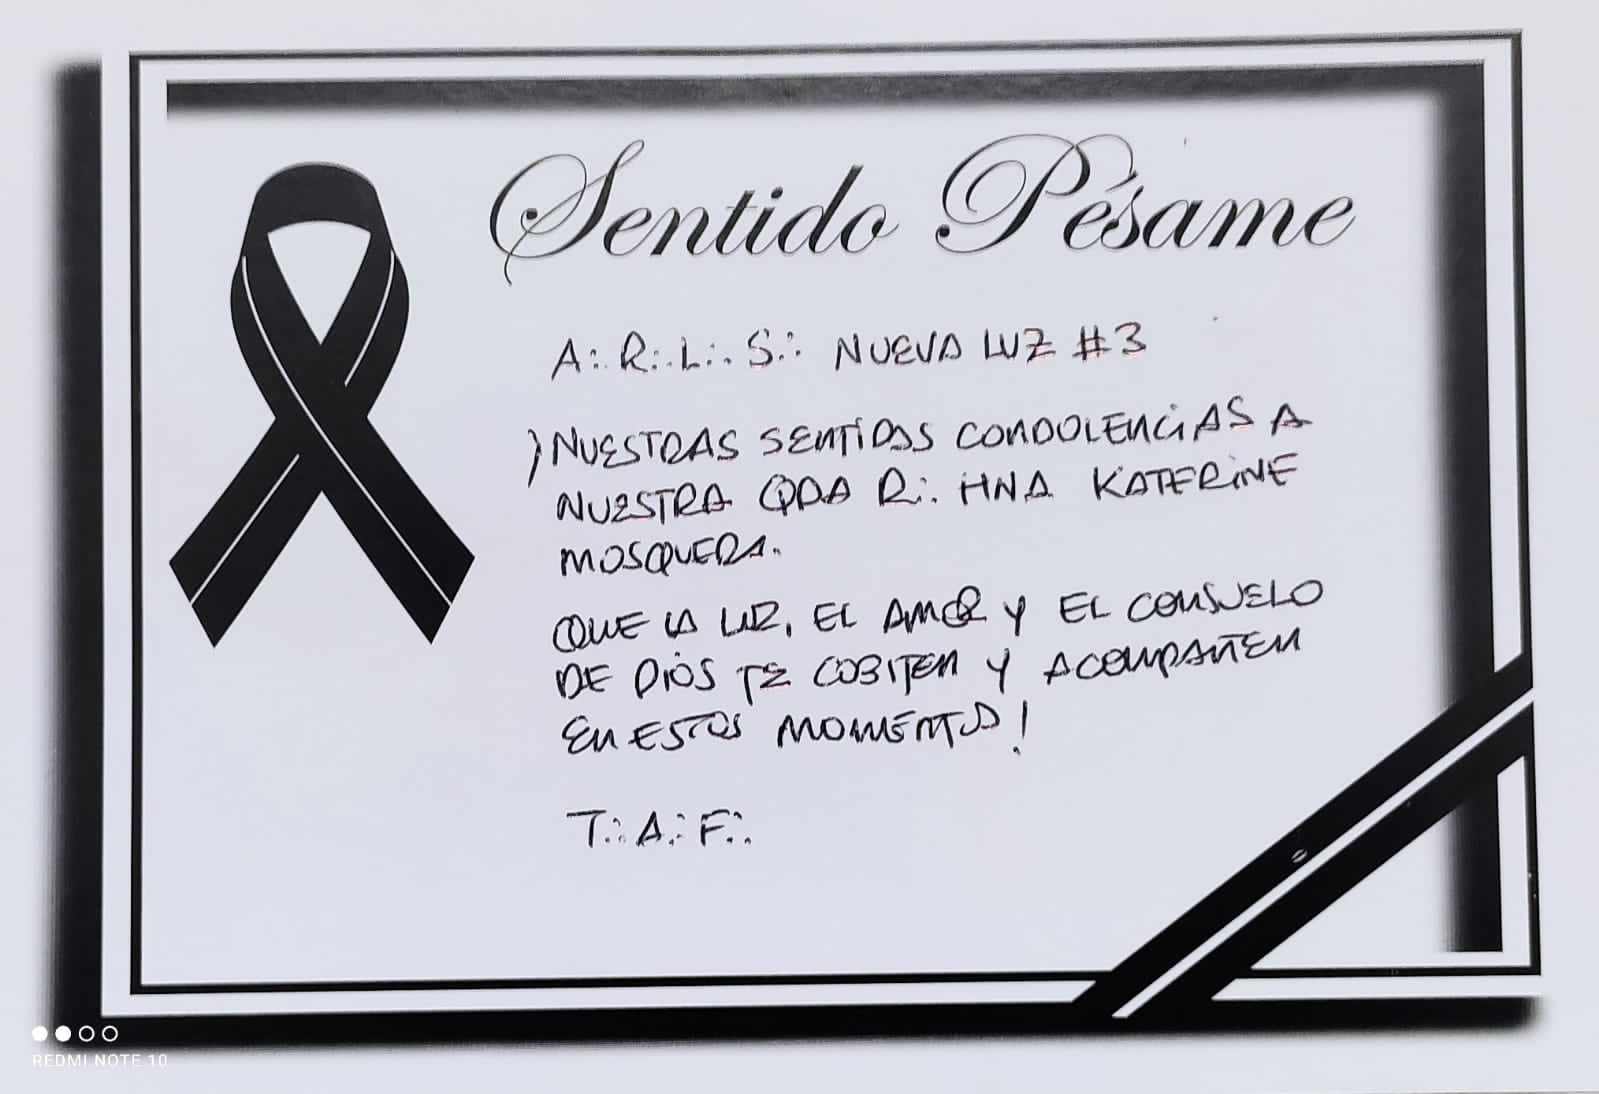 Sentido Pésame
A∴ R∴ L∴ S∴ NUEVA LUZ #3
NUESTRAS SENTIDAS CONDOLENCIAS A
NUESTRA QDA R∴ HNA KATERINE
MOSQUERA.
QUE LA LUZ, EL AMOR Y EL CONSUELO
DE DIOS TE COBIJEN Y ACOMPAÑEN
EN ESTOS MOMENTOS!
T∴ A∴ F∴
REDMI NOTE 10